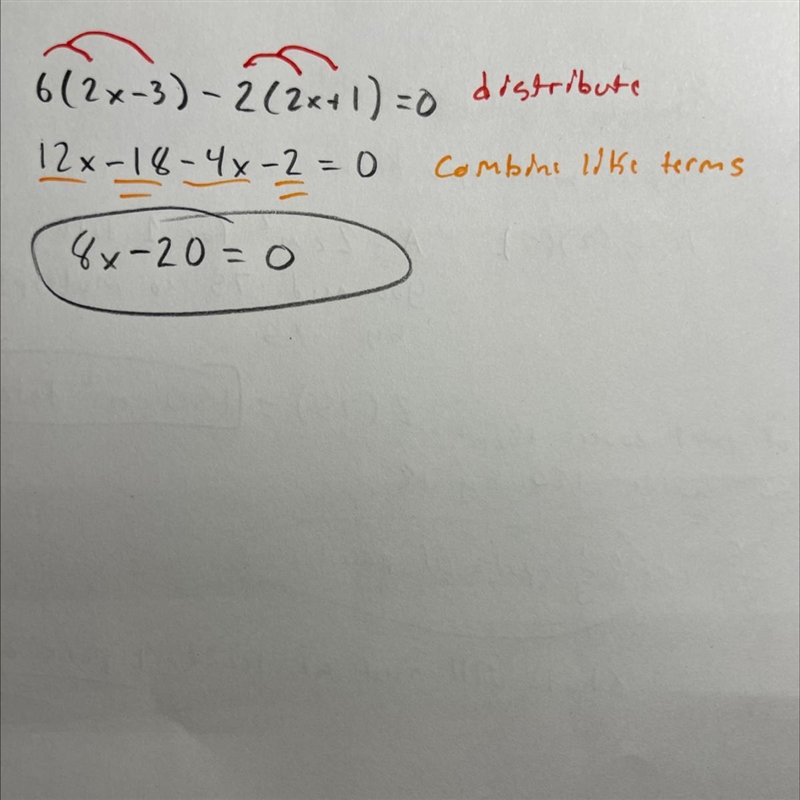 6(2x-3)-2(2x+1)=0 distribute
12x-18-4x-2=0 combine like terms
8x-20=0